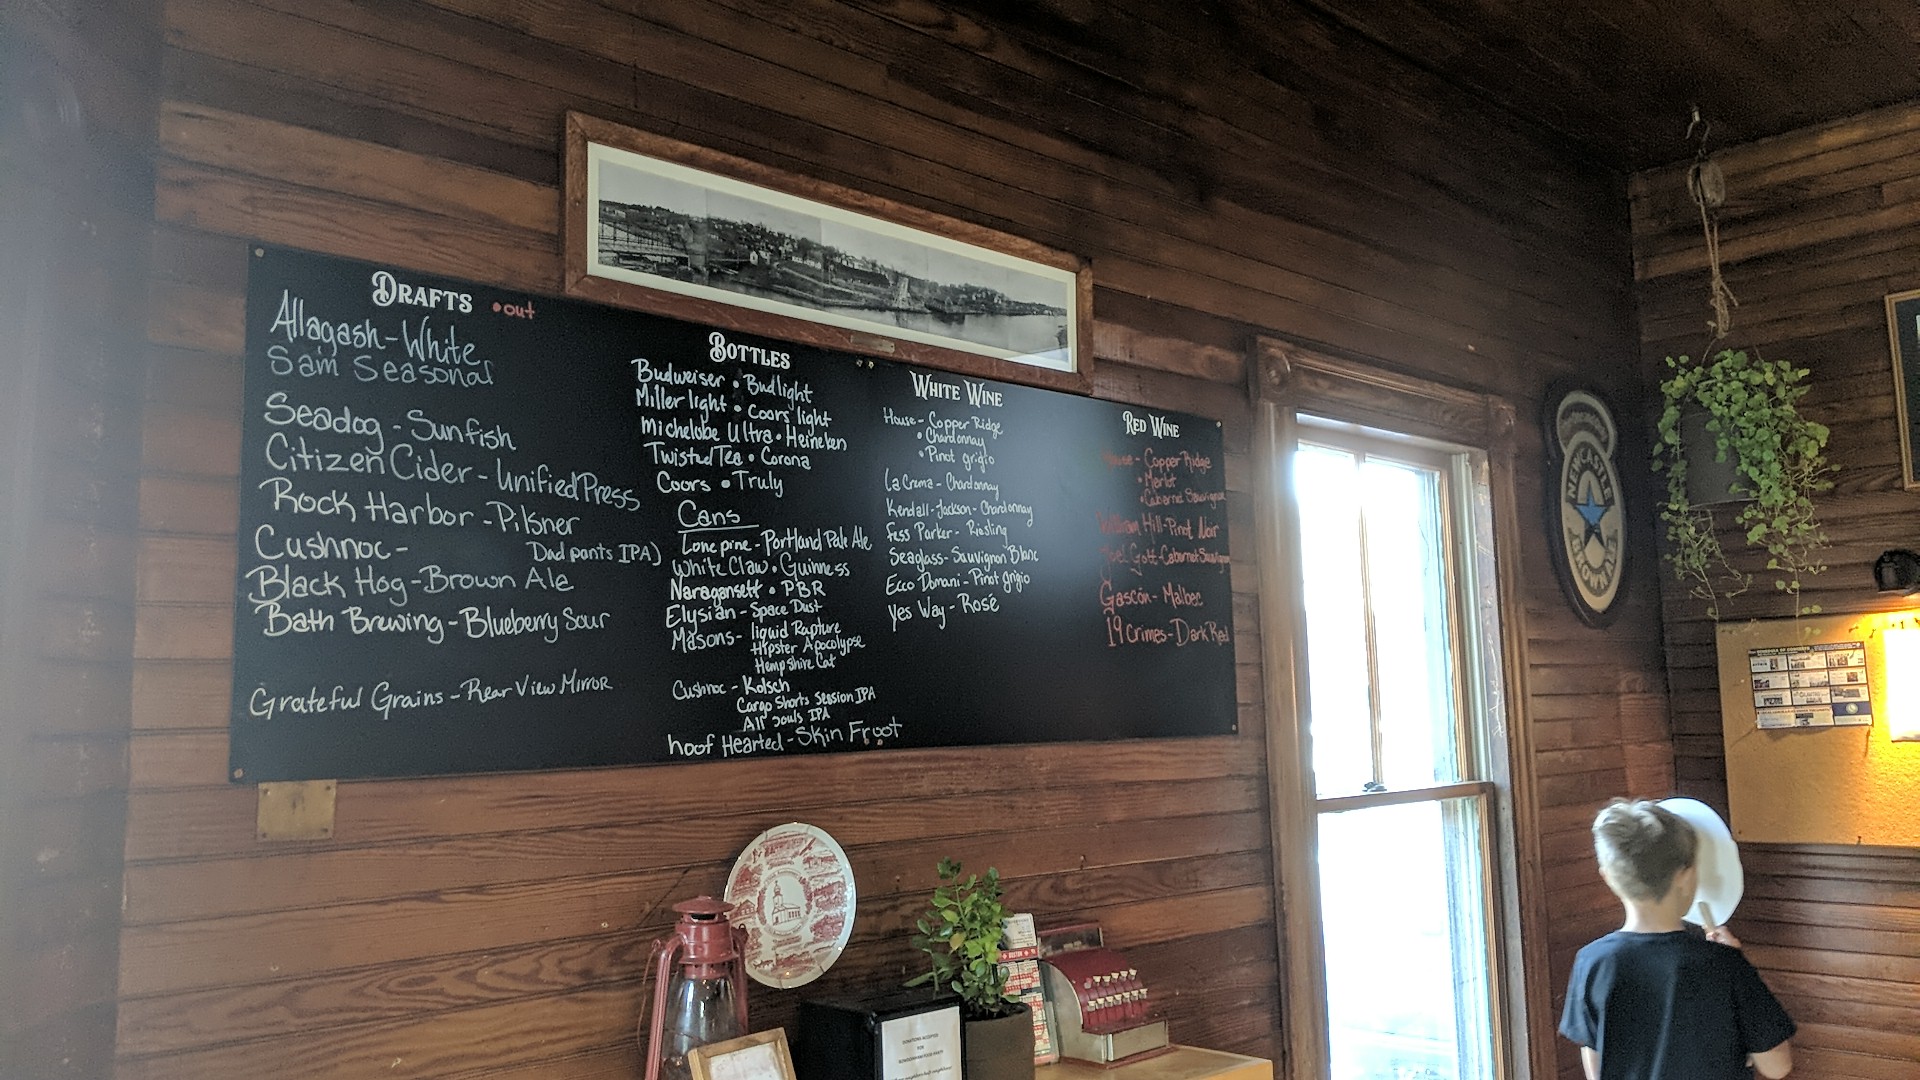 DRAFTS • out
Allagash - White
Sam Seasonal
Seadog - Sunfish
Citizen Cider - Unified Press
Rock Harbor - Pilsner
Cushnoc - Dad pants IPA)
Black Hog - Brown Ale
Bath Brewing - Blueberry Sour
Grateful Grains - Rear View Mirror
BOTTLES
Budweiser • Budlight
Miller light • Coors light
Michelobe Ultra • Heineken
Twisted Tea • Corona
Coors • Truly
Cans
Lone pine - Portland Pale Ale
White Claw • Guinness
Naragansett • PBR
Elysian - Space Dust
Masons - liquid Rapture
Hipster Apocolypse
Hempshire Cat
Cushnoc - Kolsch
Cargo Shorts Session IPA
All Souls IPA
hoof Hearted - Skin Froot
WHITE WINE
House - Copper Ridge
• Chardonnay
• Pinot grigio
La Crema - Chardonnay
Kendall-Jackson - Chardonnay
Fess Parker - Riesling
Seaglass - Sauvignon Blanc
Ecco Domani - Pinot grigio
Yes Way - Rosé
RED WINE
House - Copper Ridge
• Merlot
• Cabernet Sauvignon
William Hill - Pinot Noir
Joel Gott - Cabernet Sauvignon
Gascón - Malbec
19 Crimes - Dark Red
NEWCASTLE
BROWN ALE
DONATIONS ACCEPTED
FOR